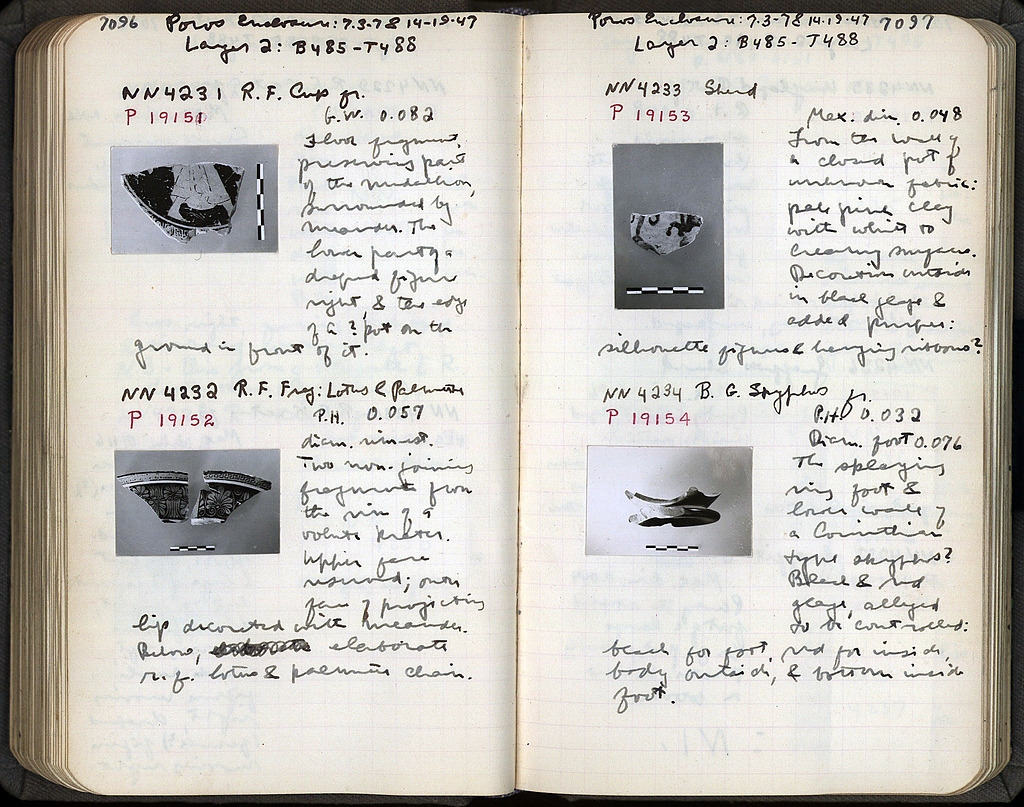 7096 Poros Enclosure: 7-3-7 & 14-19-47
Layer 2: B485 - T488
NN4231 R. F. Cup fr.
P 19151
G.W. 0.082
Floor fragment,
preserving part
of the medallion,
surrounded by
meander. The
lower part of a
draped figure
right, & the edge
of a ? pot on the
ground in front of it.
NN4232 R. F. Frag: Lotus & Palmette
P 19152
P.H. 0.057
diam. rim est.
Two non-joining
fragments from
the rim of a
volute krater.
Upper face
reserved; outer
face of projecting
lip decorated with meander.
Below, elaborate
r.f. lotus & palmette chain.
Poros Enclosure: 7-3-7 & 14-19-47 7097
Layer 2: B485 - T488
NN4233 Sherd
P 19153
Max. dim. 0.048
From the wall of
a closed pot of
unknown fabric:
pale pink clay
with white to
creamy surface.
Decoration outside
in black glaze &
added purple:
silhouette figures & hanging ribbons?
NN4234 B. G. Skyphos fr.
P 19154
P.H. 0.032
Diam. foot 0.076
The splaying
ring foot &
lower wall of
a Corinthian
type skyphos?
Black & red
glaze, alleged
to be controlled:
black for foot, red for inside,
body outside, & bottom inside
foot.